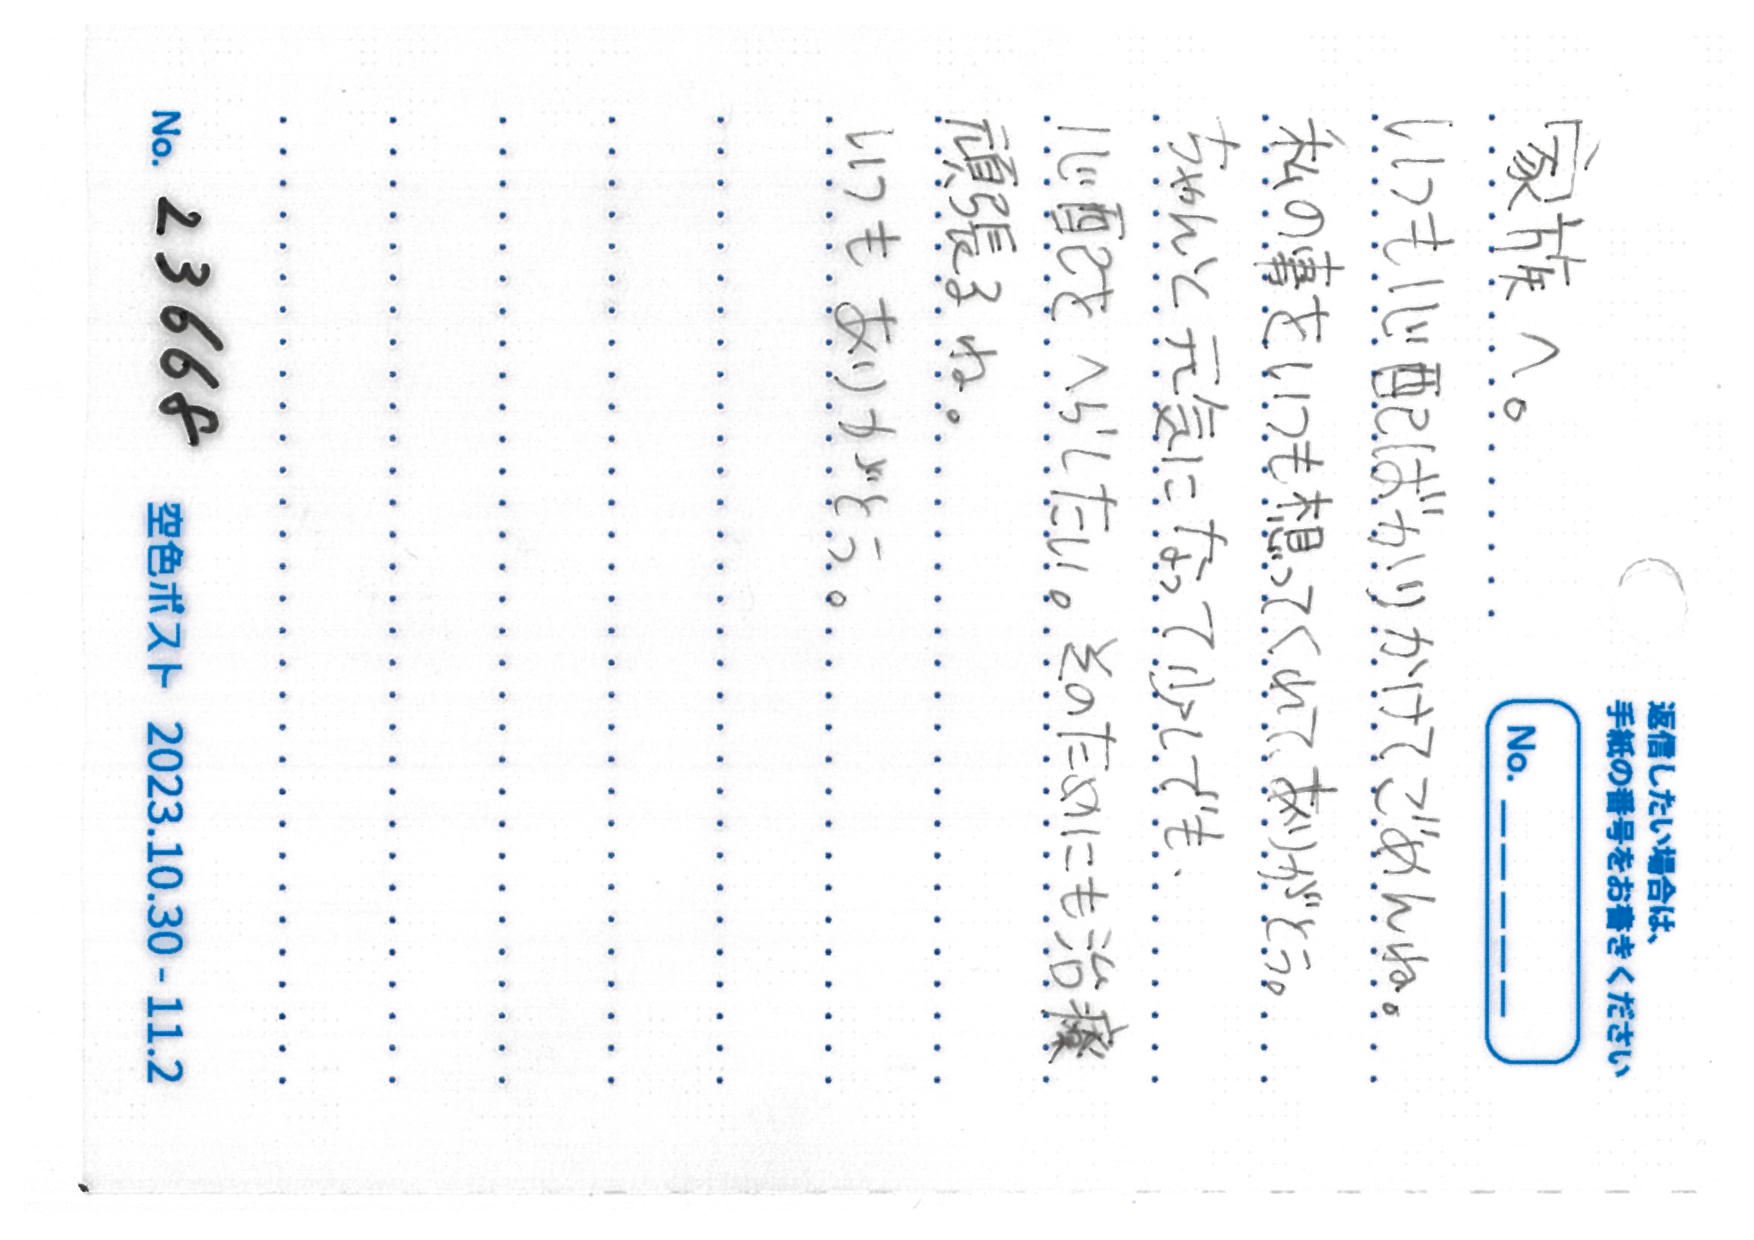 返信したい場合は、
手紙の番号をお書きください
No. _ _ _ _ _
家族へ。
いつも心配ばかりかけてごめんね。
私の事をいつも想ってくれて、ありがとう。
ちゃんと元気になって少しでも、
心配をへらしたい。そのためにも治療
頑張るね。
いつもありがとう。
No. 23668 空色ポスト 2023.10.30 - 11.2